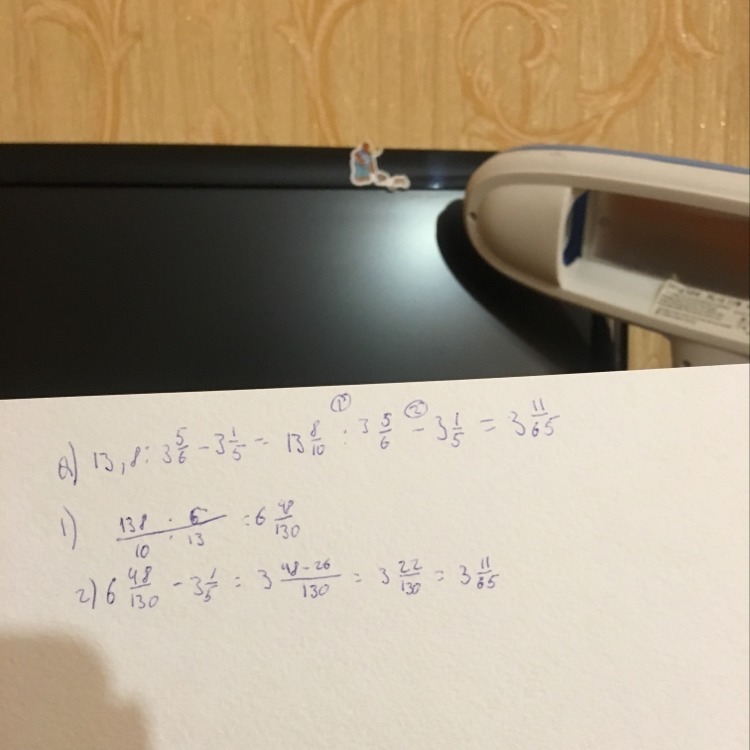 а) 13,8 : 3 5/6 - 3 1/5 = 13 8/10 : 3 5/6 - 3 1/5 = 3 11/65
1) 138 · 6 / 10 · 13 = 6 48/130
2) 6 48/130 - 3 1/5 = 3 48-26/130 = 3 22/130 = 3 11/65